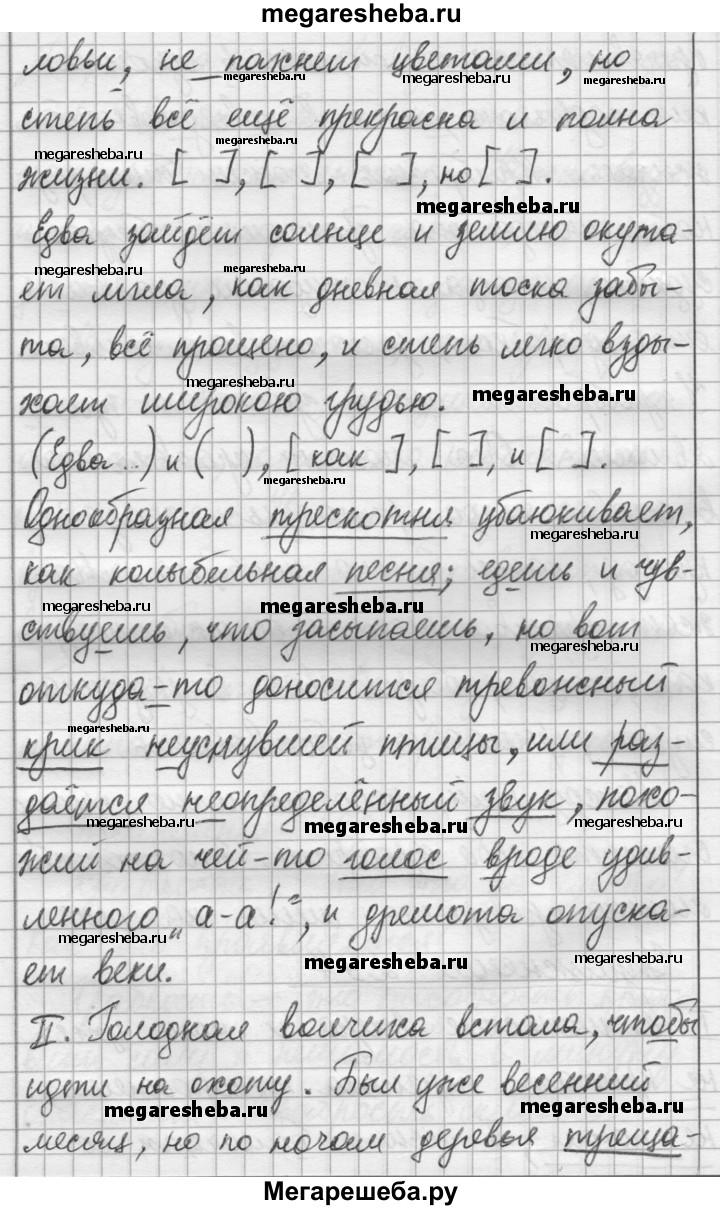 megaresheba.ru
ловьи, не пахнет цветами, но
megaresheba.ru megaresheba.ru megaresheba.ru
степь всё ещё прекрасна и полна
megaresheba.ru megaresheba.ru
жизни. [ ], [ ], [ ], но [ ].
megaresheba.ru
Едва зайдёт солнце и землю окута-
megaresheba.ru megaresheba.ru
ет мгла, как дневная тоска забы-
та, всё прощено, и степь легко взды-
megaresheba.ru megaresheba.ru
хает широкою грудью.
(Едва...) и ( ), [как ], [ ], и [ ].
megaresheba.ru
Однообразная трескотня убаюкивает,
megaresheba.ru
как колыбельная песня; едешь и чув-
megaresheba.ru megaresheba.ru megaresheba.ru
ствуешь, что засыпаешь, но вот
megaresheba.ru
откуда-то доносится тревожный
megaresheba.ru
крик неуснувшей птицы, или раз-
даётся неопределённый звук, похо-
megaresheba.ru megaresheba.ru megaresheba.ru
жий на чей-то голос вроде удив-
ленного „а-а!“, и дремота опуска-
megaresheba.ru megaresheba.ru megaresheba.ru
ет веки.
II. Голодная волчиха встала, чтобы
идти на охоту. Был уже весенний
megaresheba.ru megaresheba.ru
месяц, но по ночам деревья треща-
Мегарешеба.ру